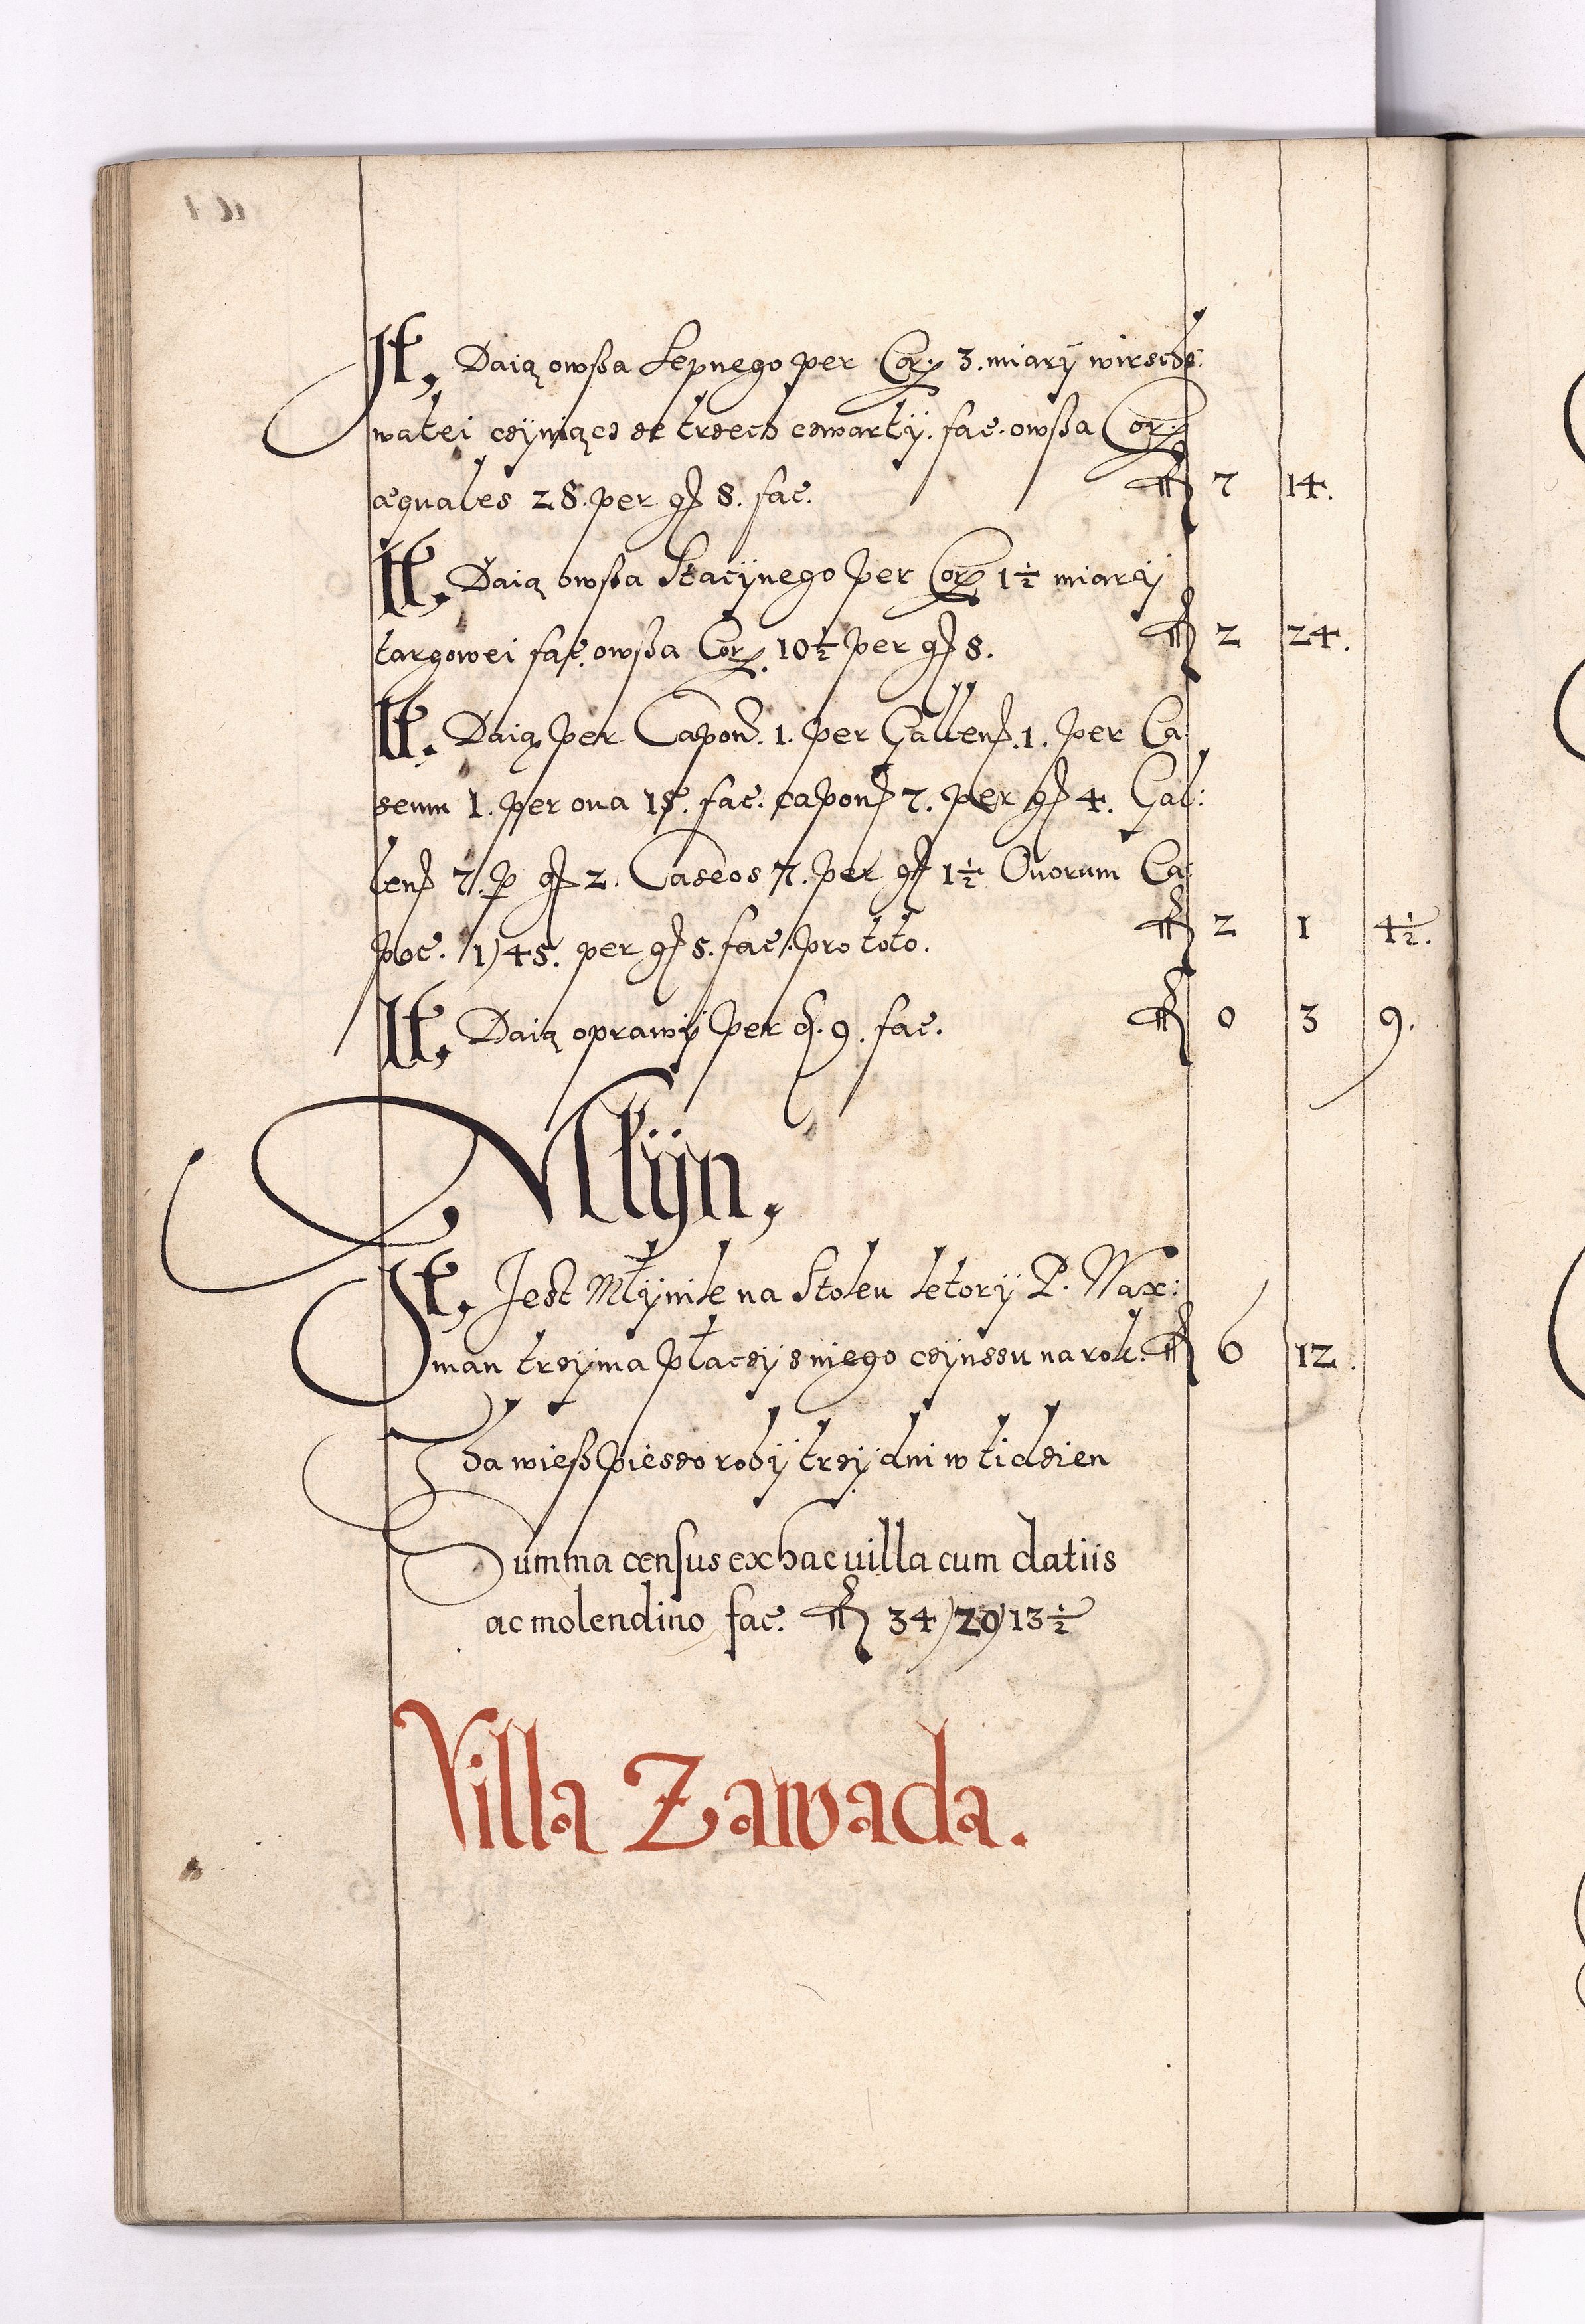 It, Daią owßa Sepnego per Cor: 3. miarÿ wirzcho:
watei czÿniącz ze trzech czwartÿ. fac. owßa Cor:
æquales 28. per g 8. fac. fl 7 14.
It, Daią owßa Stacÿnego per Cor 1½ miarÿ
targowei fac. owßa Cor. 10½ per g 8. fl 2 24.
It. Daią per Capon. 1. per Gallen. 1. per Ca:
seum 1. per oua 15. fac. capon 7. per g 4. Gal:
len 7. p g 2. Caseos 7. per g 1½ Ouorum Ca:
poc. 1)45. per g 5. fac. pro toto. fl 2 1 4½.
It, Daią oprawÿ per d. 9. fac. fl 0 3 9.
Młÿn,
It, Jest Młÿnik na Stoku ktorÿ P. Wax:
man trzÿma płaczÿ z niego czÿnszu na rok. fl 6 12.
Tha wieß pieszo robÿ trzÿ dni w tidzien
Summa census ex hac uilla cum datiis
ac molendino fac. fl 34)29)13½
Villa Zawada.